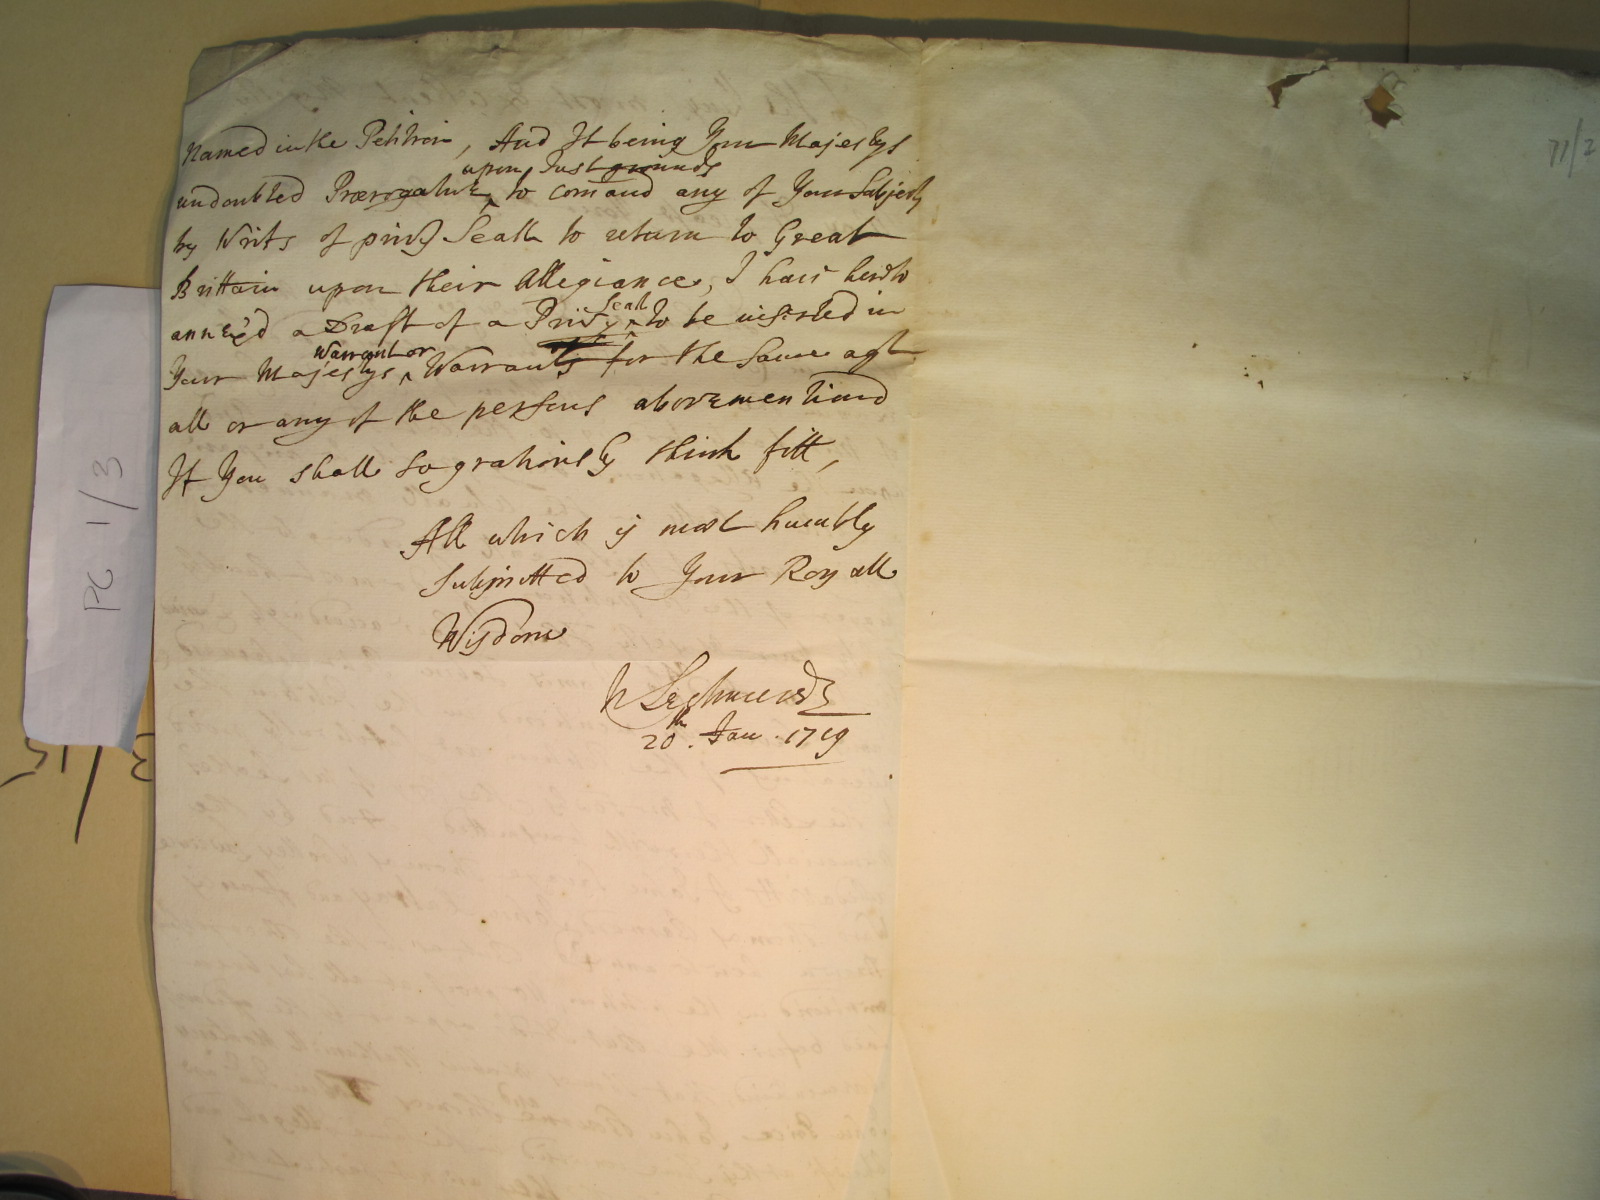 Named in the Petition, And It being Your Majestys
upon Just grounds
undoubted Prærogative to comand any of Your Subjects
by Writs of privy Seall to return to Great
Brittain upon their Allegiance, I have hereto
annex'd a Draft of a Privy Seall to be inserted in
Warrant or
Your Majestys Warrants for the same agt
all or any of the persons abovementiond
If You shall so gratiously think fitt,
All which is most humbly
Submitted to Your Royall
Wisdome
N Lechmere
20th. Jan. 1719
PC 1/3
71/2